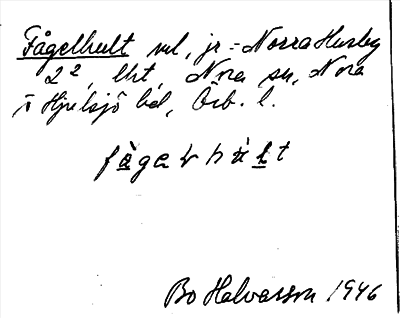 Fågelhult vel, jr = Norra Husby
2², lht, Nora sn, Nora
o Hjulsjö bd, Örb. l.
fågelhult
Bo Halvarson 1946